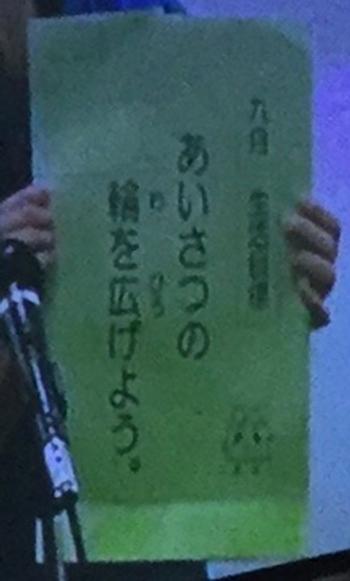 九月 生活目標
あいさつの
輪を広げよう。
わ ひろ